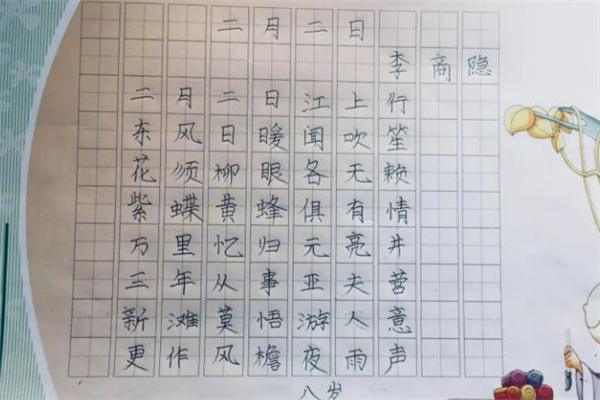 二月二日
李商隐
二月二日江上行
东风日暖闻吹笙
花须柳眼各无赖
紫蝶黄蜂俱有情
万里忆归元亮井
三年从事亚夫营
新滩莫悟游人意
更作风檐夜雨声
八岁